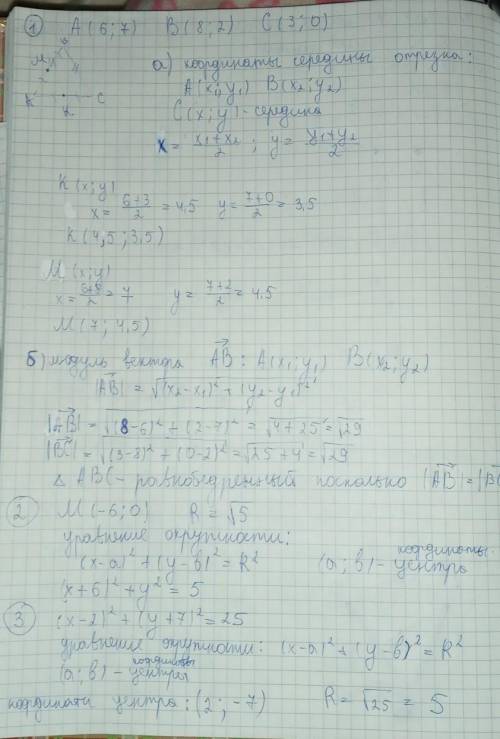 1 A(6;7) B(8;2) C(3;0)
а) координаты середины отрезка:
A(x₁;y₁) B(x₂;y₂)
C(x;y) - середина
x = (x₁+x₂)/2 ; y = (y₁+y₂)/2
M
K
C
K(x;y)
x = (6+3)/2 = 4,5 y = (7+0)/2 = 3,5
K(4,5;3,5)
M(x;y)
x = (6+8)/2 = 7 y = (7+2)/2 = 4.5
M(7; 4,5)
Б) модуль вектора AB: A(x₁;y₁) B(x₂;y₂)
|AB| = √(x₂-x₁)² + (y₂-y₁)²
|AB| = √(8-6)² + (2-7)² = √4+25 = √29
|BC| = √(3-8)² + (0-2)² = √25+4 = √29
Δ ABC - равнобедренный поскольку |AB|=|BC
2 M(-6;0) R = √5
уравнение окружности:
(x-a)² + (y-b)² = R² (a;b) - координаты центра
(x+6)² + y² = 5
3 (x-2)² + (y+7)² = 25
уравнение окружности: (x-a)² + (y-b)² = R²
(a;b) - координаты центры
координати центра: (2;-7) R = √25 = 5